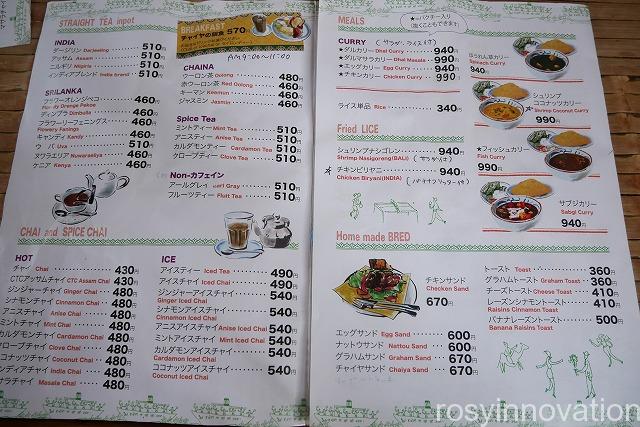 STRAIGHT TEA inpot
INDIA
ダージリン Darjeeling 510円
アッサム Assam 510円
ニルギリ Nilgiris 510円
インディアブレンド India brend 510円
SRILANKA
フラワーオレンジペコ 460円
Flowery Orange Pekoe
ディンブラ Dimbulla 460円
フラワリーフェニングス 460円
Flowery Fanings
キャンディ Kandy 460円
ウバ Uva 510円
ヌワラエリア Nuwaraeliya 460円
ケニア Kenya 460円
BREAKFAST 570円
チャイヤの朝食
AM9:00~11:00
CHAINA
ウーロン茶 Oolong 480円
赤ウーロン茶 Red Oolong 480円
キーマン Keemun 460円
ジャスミン Jasmin 460円
Spice Tea
ミントティー Mint Tea 510円
アニスティー Anise Tea 510円
カルダモンティー Cardamon Tea 510円
クローブティー Clove Tea 510円
Non-カフェイン
アールグレイ earl Gray 510円
フルーツティー Fluit Tea 510円
CHAI and SPICE CHAI
HOT
チャイ Chai 430円
CTCアッサムチャイ CTC Assam Chai 430円
ジンジャーチャイ Ginger Chai 480円
シナモンチャイ Cinnamon Chai 480円
アニスチャイ Anise Chai 480円
ミントチャイ Mint Chai 480円
カルダモンチャイ Cardamon Chai 480円
クローブチャイ Clove Chai 480円
ココナッツチャイ Coconut Chai 480円
インディアチャイ India Chai 480円
マサラチャイ Masala Chai 480円
ICE
アイスティー Iced Tea 490円
アイスチャイ Iced Chai 490円
ジンジャーアイスチャイ 540円
Ginger Iced Chai
シナモンアイスチャイ 540円
Cinnamon Iced Chai
アニスアイスチャイ Anise Iced Chai 540円
ミントアイスチャイ Mint Iced Chai 540円
カルダモンアイスチャイ 540円
Cardamon Iced Chai
ココナッツアイスチャイ 540円
Coconut Iced Chai
MEALS
★=パクチー入り
(抜くこともできます)
CURRY (サラダ、ライス付)
★ダルカリー Dhal Curry 940円
★ダルマサラカリー Dhal Masala 990円
★エッグカリー Egg Curry 940円
★チキンカリー Checken Curry 990円
ライス単品 Rice 340円
Fried LICE
シュリンプナシゴレン 940円
Shrimp Nasigoreng(BALI) (サラダ付)
★チキンビリヤニ 940円
Chicken Biryani(INDIA)
ほうれん草カリー
Spinach Curry
940円
シュリンプ
ココナッツカリー
★Shrimp Coconut Curry
990円
★フィッシュカリー
Fish Curry
990円
サブジカリー
Sabgi Curry
940円
Home made BRED
チキンサンド
Checken Sand
670円
エッグサンド Egg Sand 600円
ナットウサンド Nattou Sand 600円
グラハムサンド Graham Sand 670円
チャイヤサンド Chaiya Sand 670円
トースト Toast 360円
グラハムトースト Graham Toast 360円
チーズトースト Cheese Toast 410円
レーズンシナモントースト 410円
Raisins Cinnamon Toast
バナナレーズントースト 500円
Banana Raisins Toast
rosyinnovation